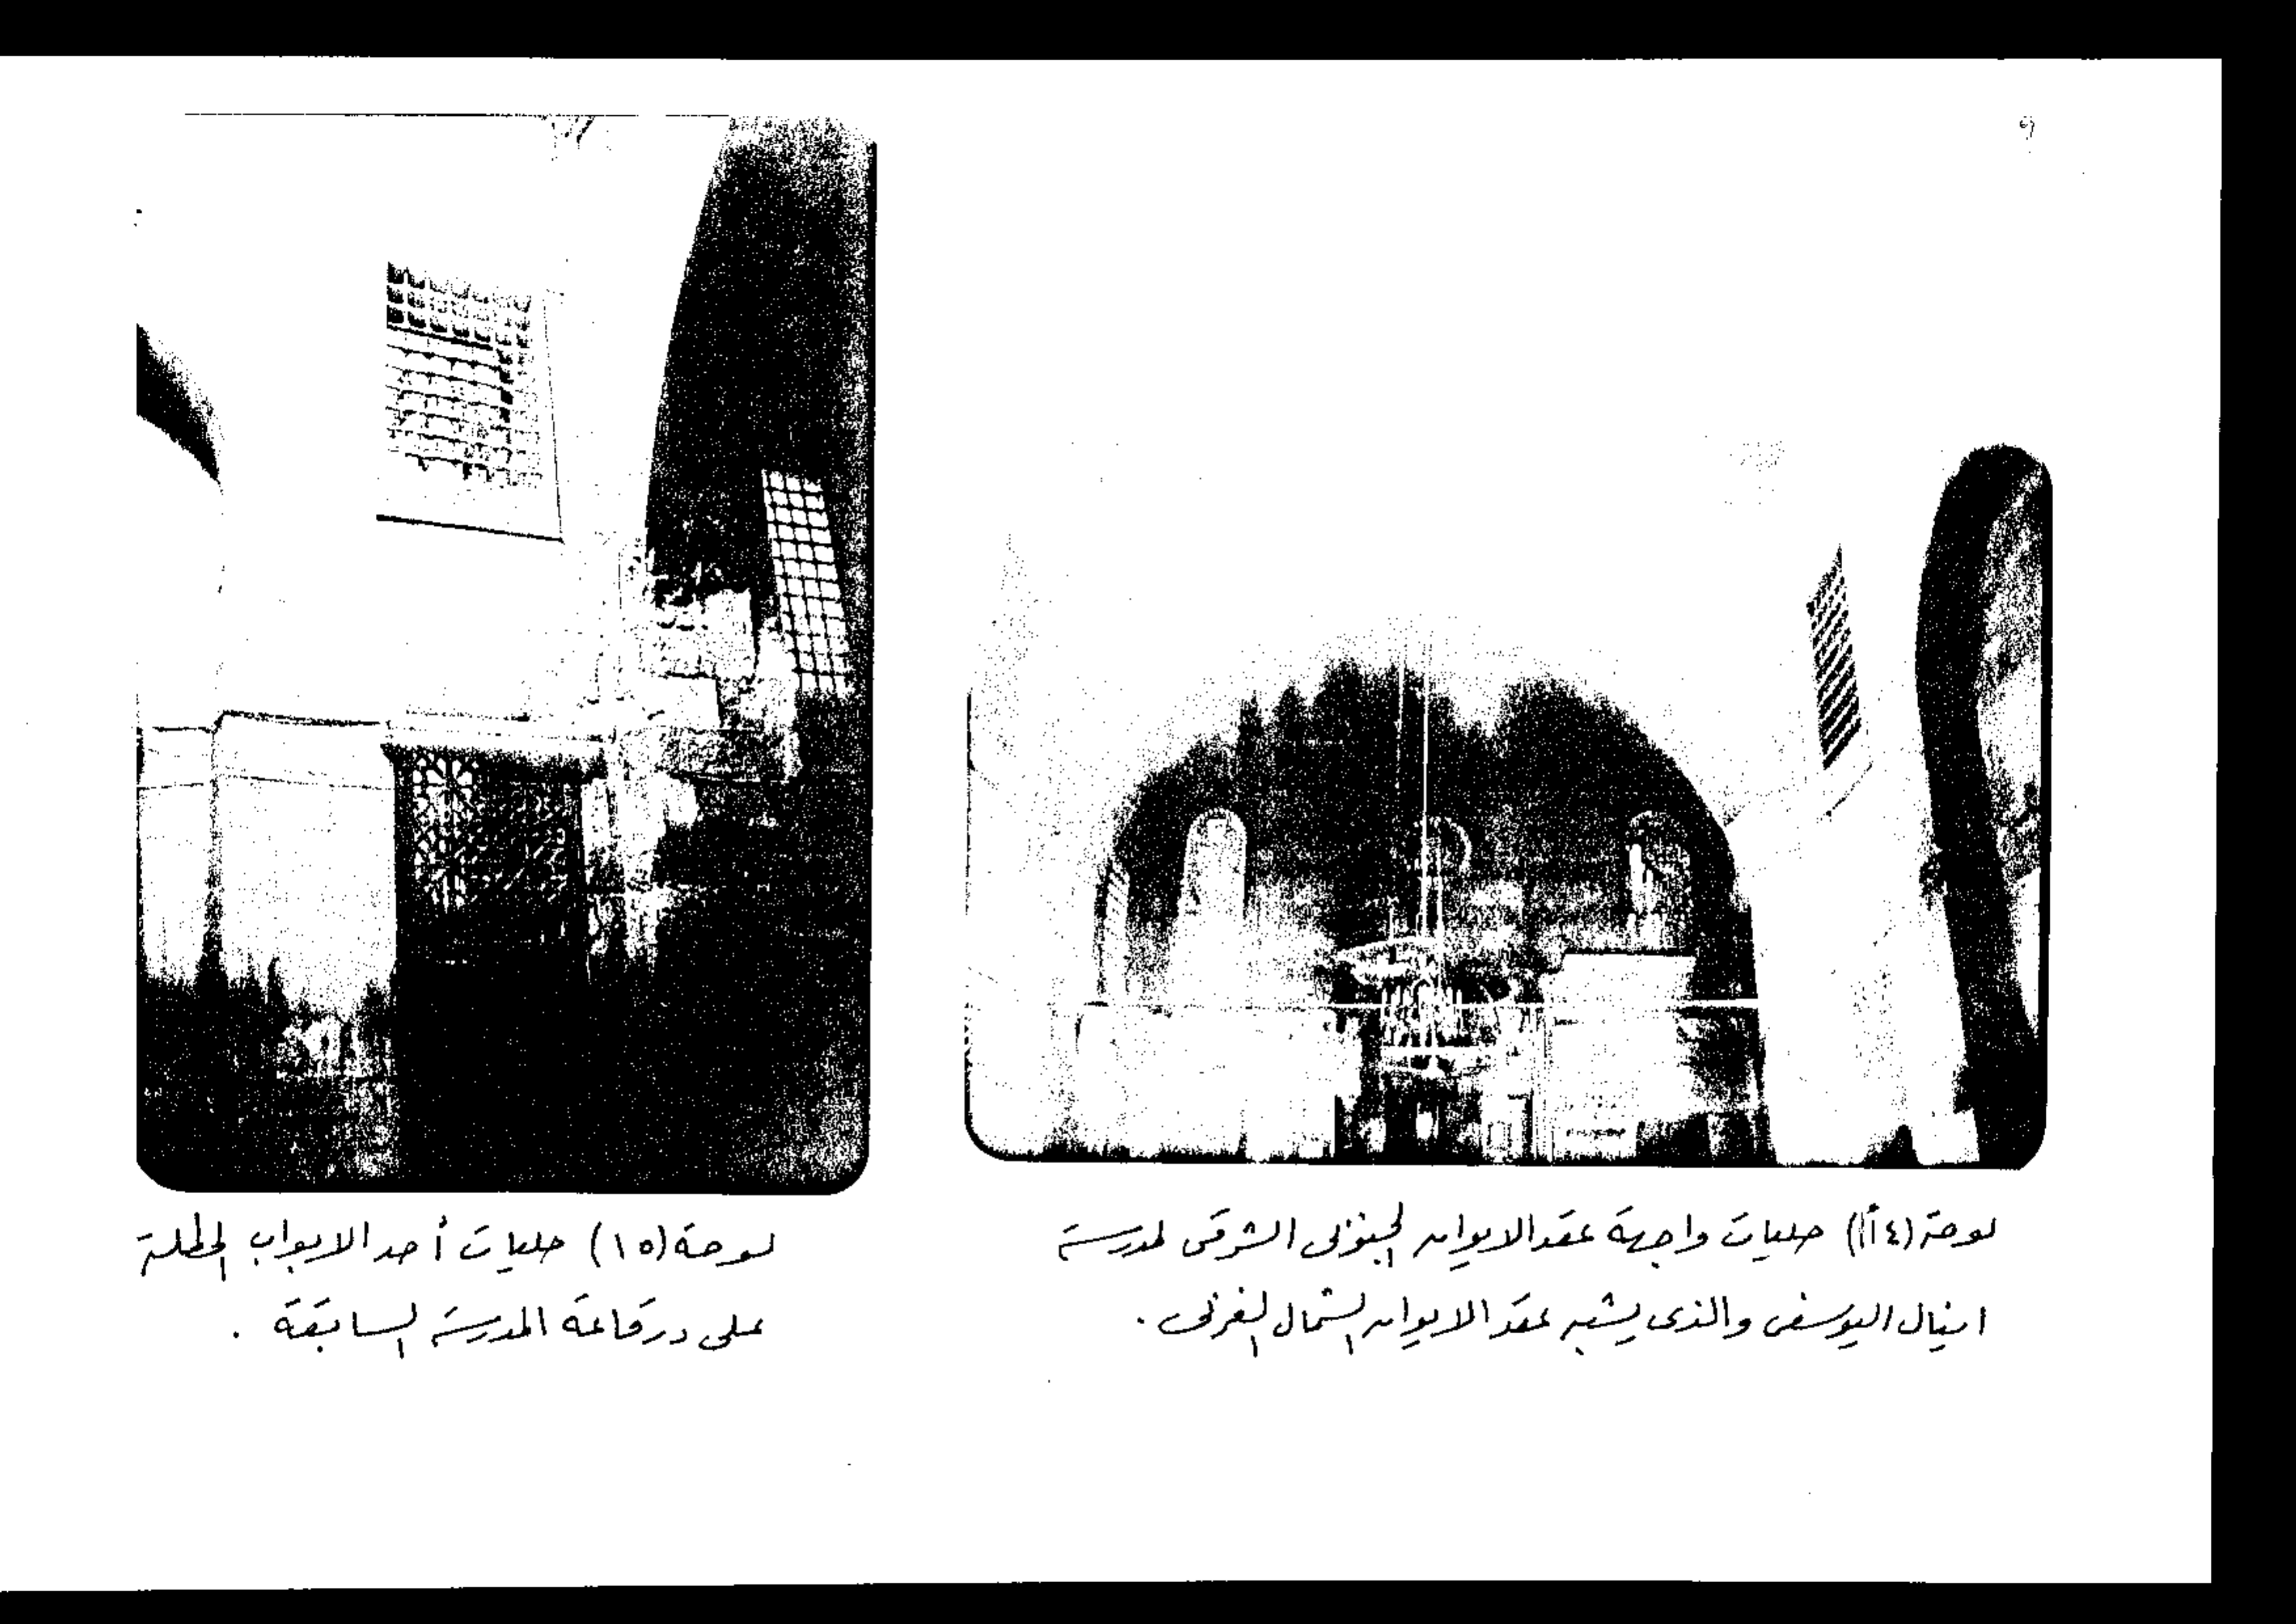 ٩
لوحة (١٤أ) حليات واجهة عقد الايوان الجنوبى الشرقى لمدرسة
اينال اليوسفى والذى يشبه عقد الايوان الشمال الغربى .
لوحة (١٥) حليات أحد الابواب المطلة
على درقاعة المدرسة السابقة .